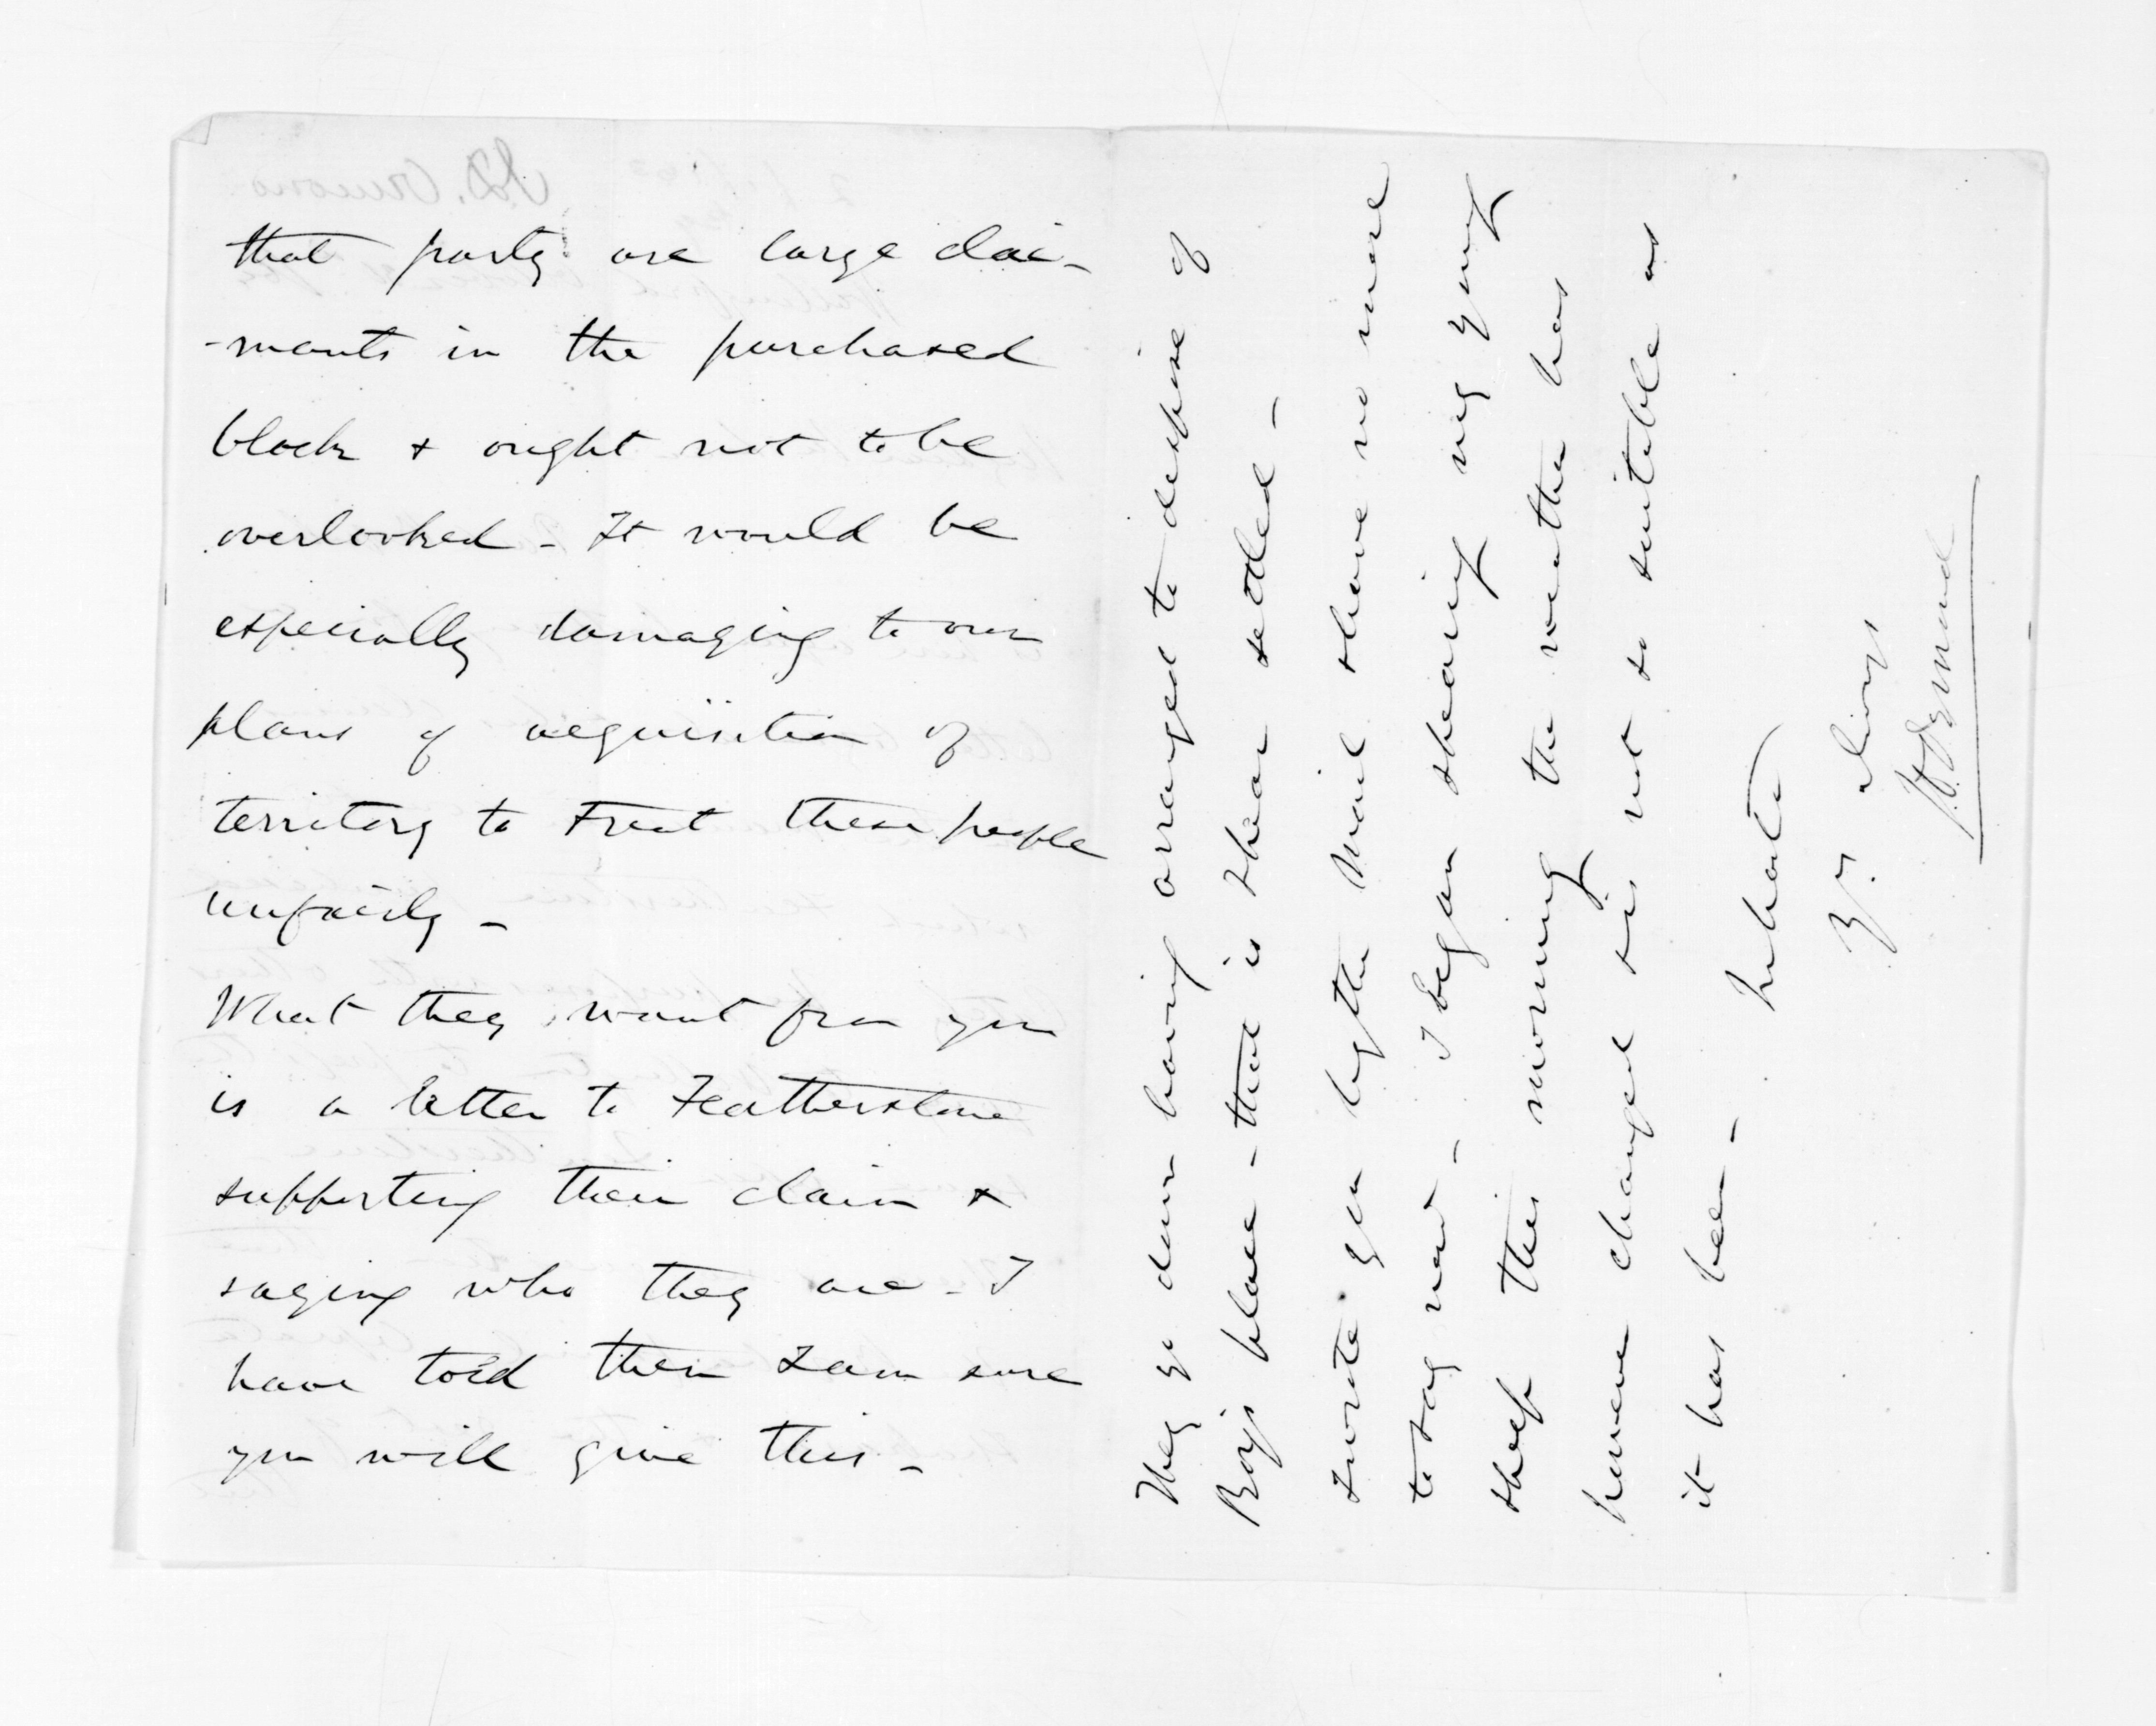 that party are large clai-
-mants in the purchased
block & ought not to be
overlooked - It would be
especially damaging to our
plans of acquisition of
territory to treat these people
unfairly -
What they want from you
is a letter to Featherstone
supporting their claim &
saying who they are - I
have told them I am sure
you will give this -
They go down having arranged to dispose of
Boy's place - that is I hear settled -
I wrote you by the mail & have no more
to say now - I began shearing my young
sheep this morning the weather has
however changed & is not so suitable as
it has been -
In haste
Yrs
J.D. Ormond